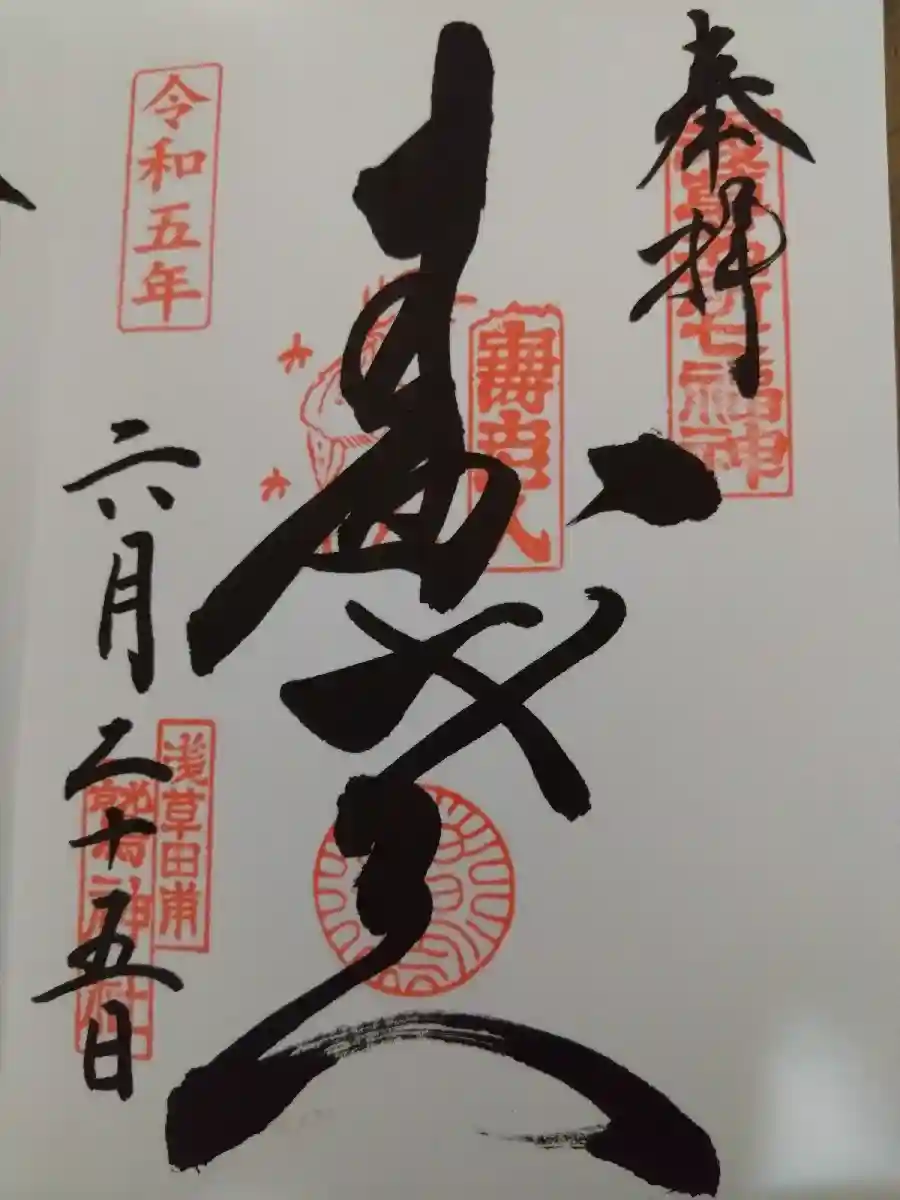 奉拝
浅草名所七福神
寿老人
寿老人
令和五年
六月二十五日
浅草田甫
鷲神社